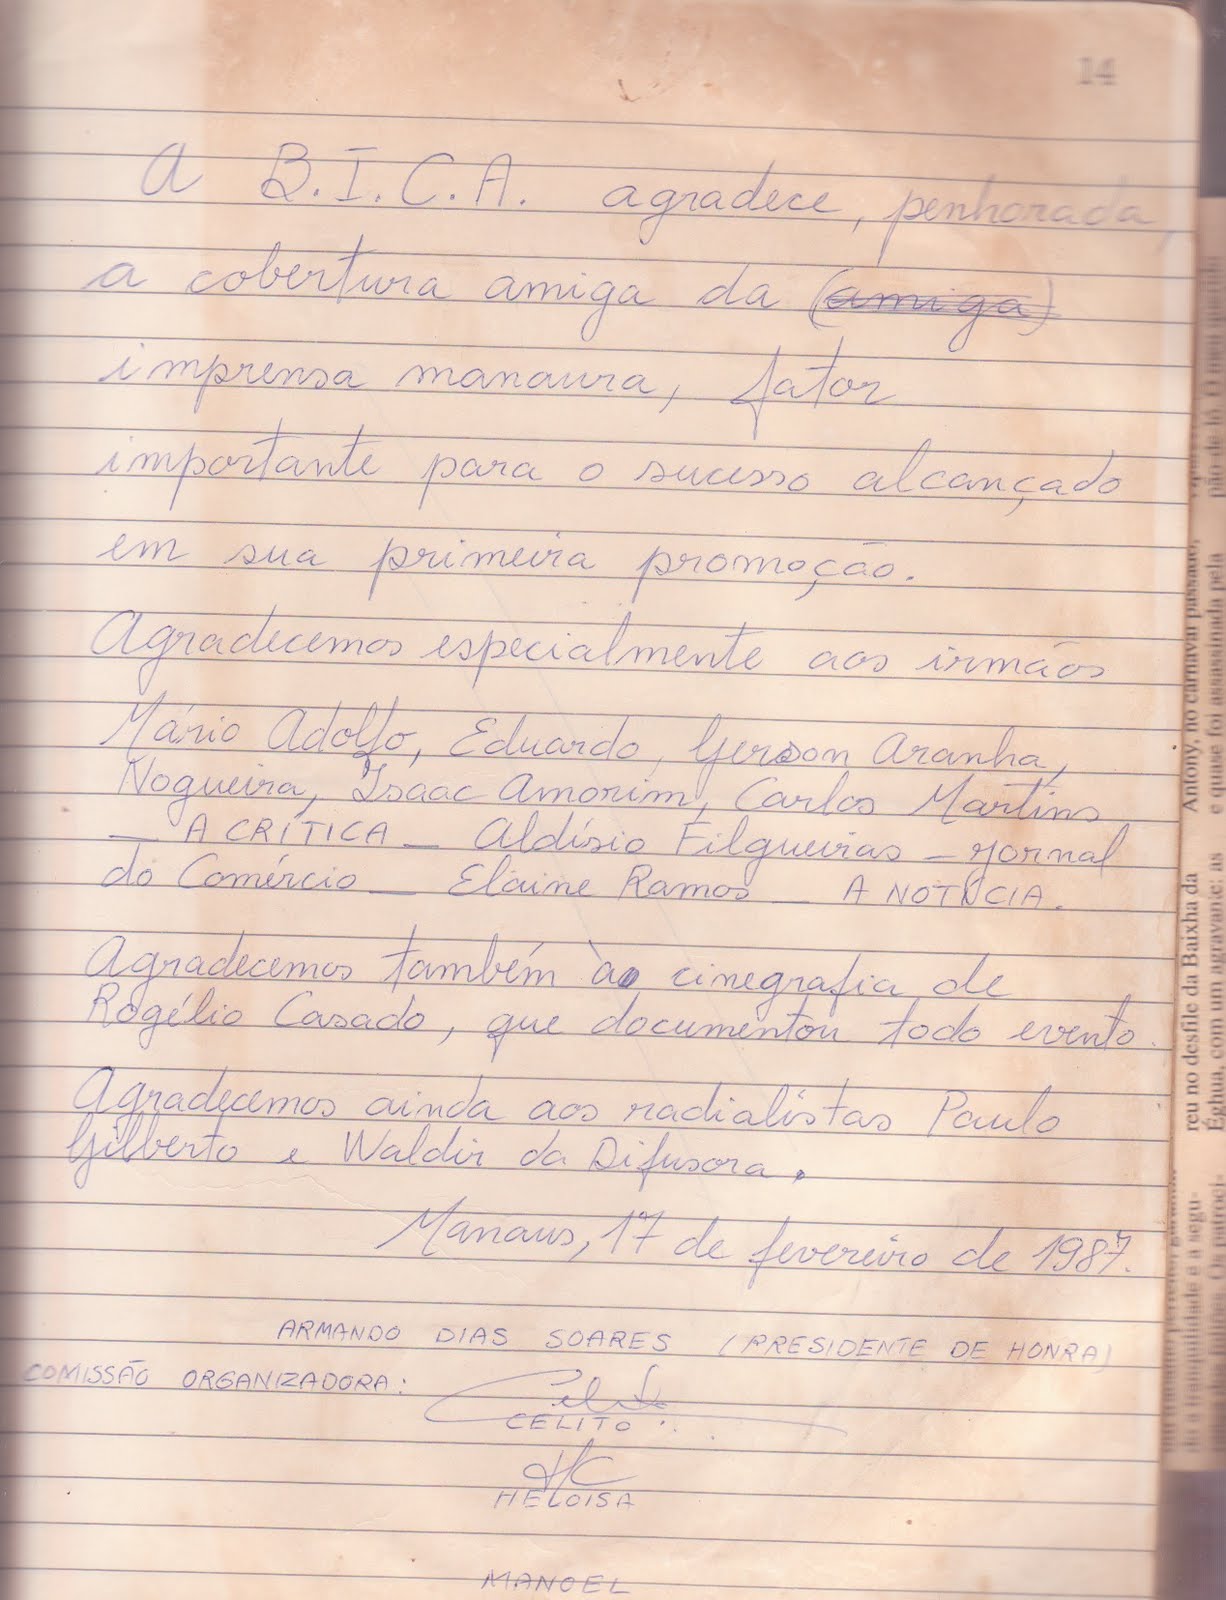 14
A B.I.C.A. agradece, penhorada,
a cobertura amiga da (amiga)
imprensa manaura, fator
importante para o sucesso alcançado
em sua primeira promoção.
Agradecemos especialmente aos irmãos
Mário Adolfo, Eduardo, Gerson Aranha,
Nogueira, Isaac Amorim, Carlos Martins
— A CRÍTICA — Aldísio Filgueiras — Jornal
do Comércio — Elaine Ramos — A NOTÍCIA.
Agradecemos também à cinegrafia de
Rogélio Casado, que documentou todo evento.
Agradecemos ainda aos radialistas Paulo
Gilberto e Waldir da Difusora.
Manaus, 17 de fevereiro de 1987.
ARMANDO DIAS SOARES (PRESIDENTE DE HONRA)
COMISSÃO ORGANIZADORA:
CELITO
HELOISA
MANOEL
reu no desfile da Baixha da Antony, no carnaval passado,
Éghua, com um agravante: as e quase foi assassinada pela